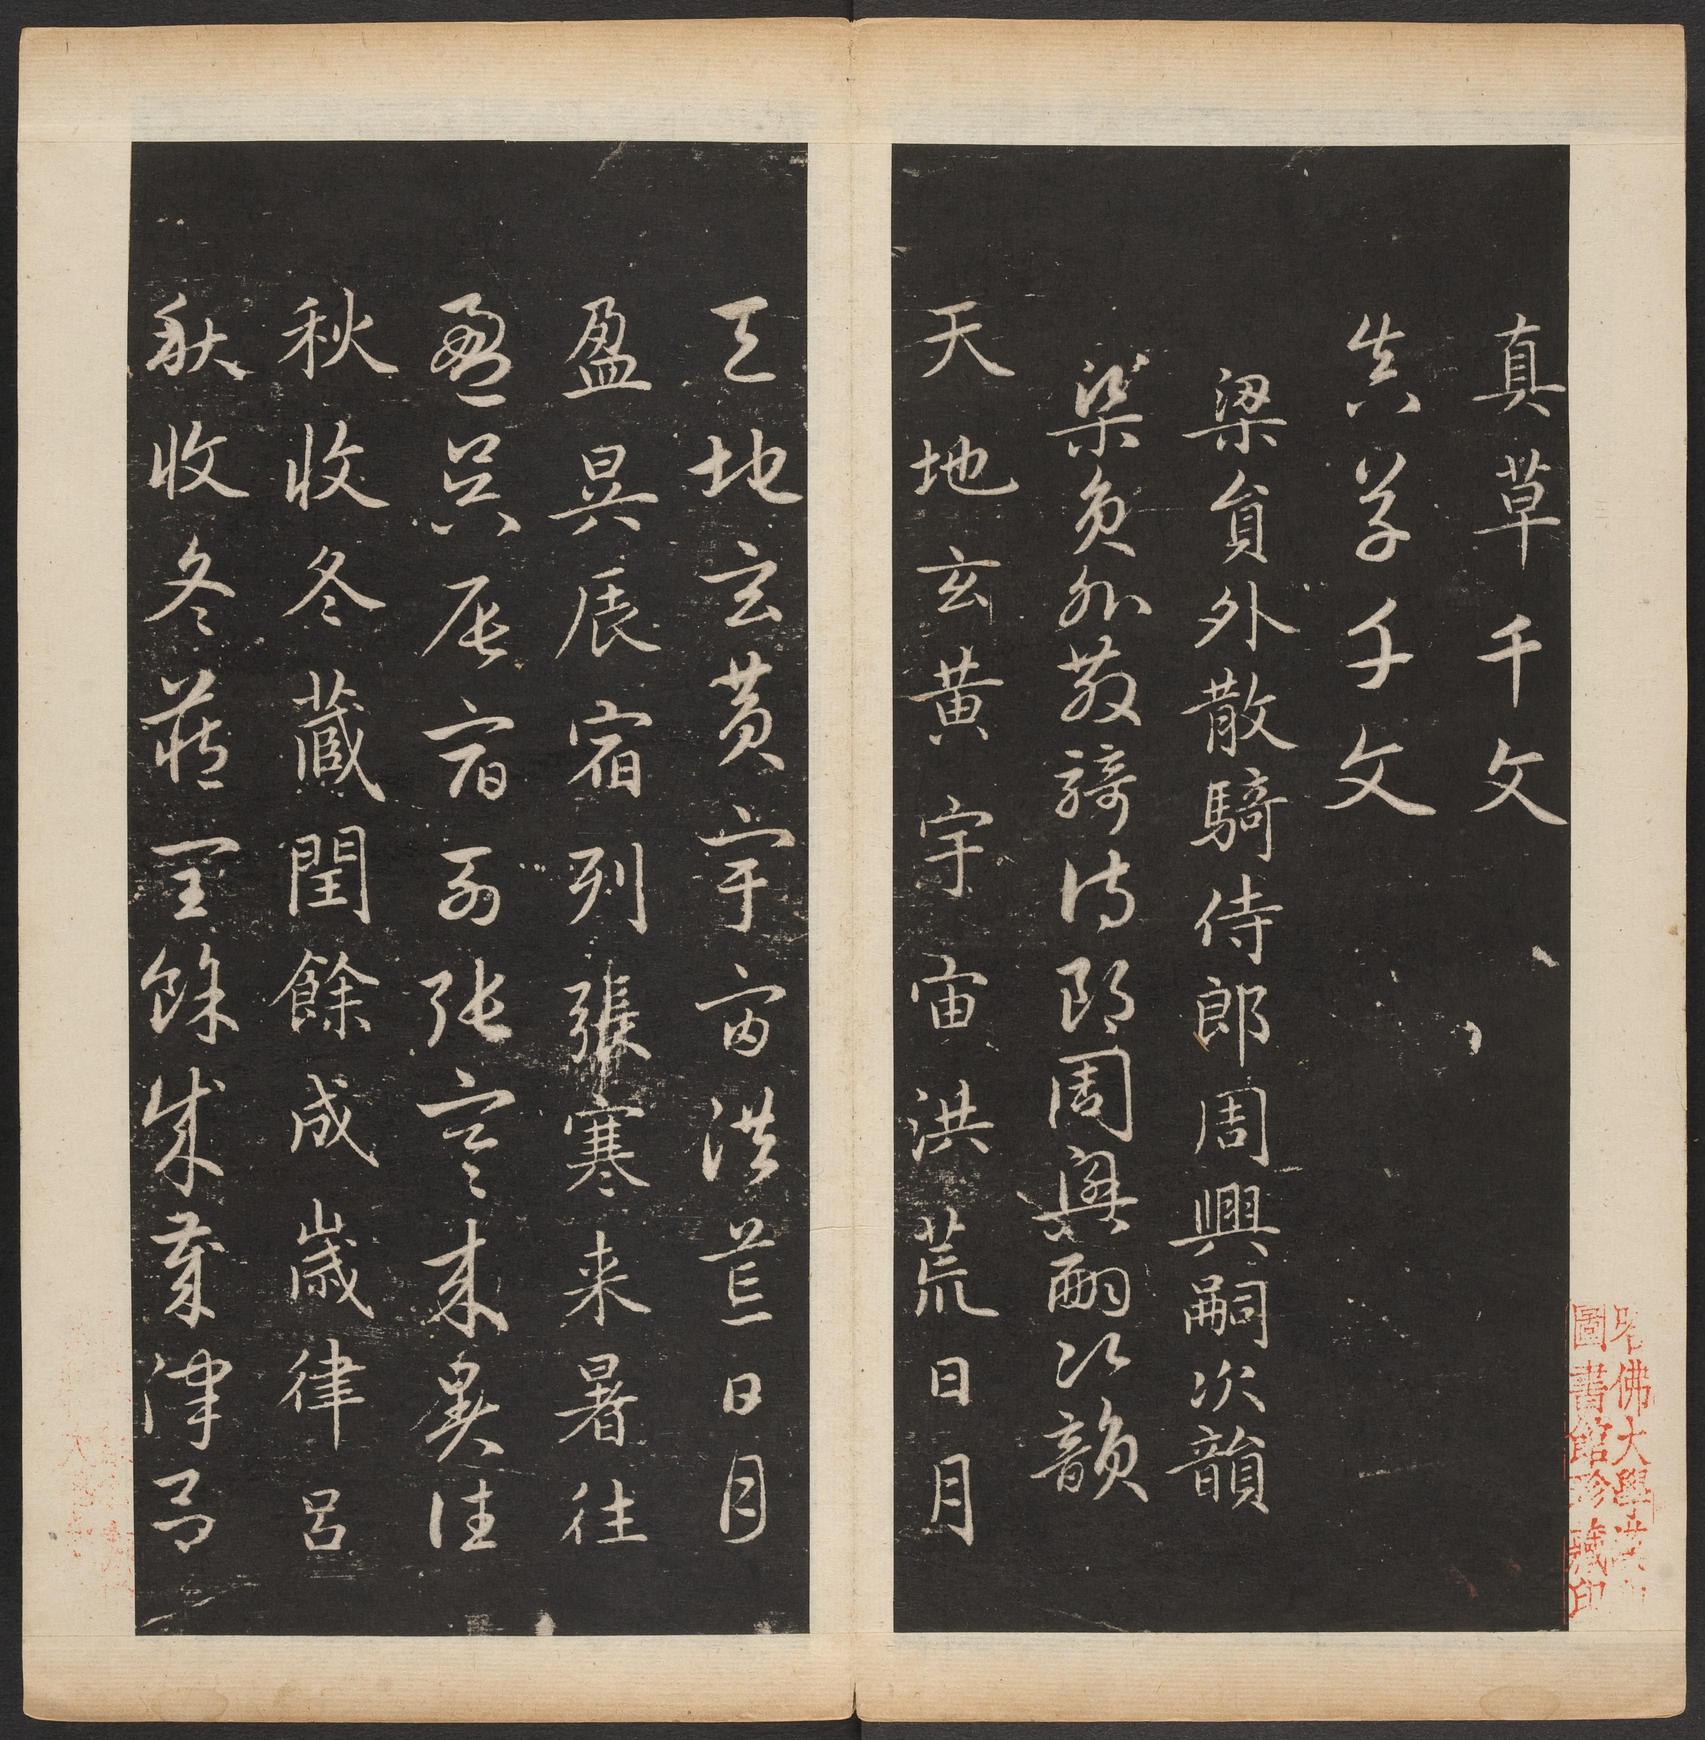 真草千文
真草千文
梁員外散騎侍郎周興嗣次韻
梁員外散騎侍郎周興嗣次韻
天地玄黄宇宙洪荒日月
天地玄黄宇宙洪荒日月
盈昃辰宿列張寒来暑往
盈昃辰宿列張寒来暑往
秋收冬藏閏餘成歲律呂
秋收冬藏閏餘成歲律呂
哈佛大學
圖書館珍藏印